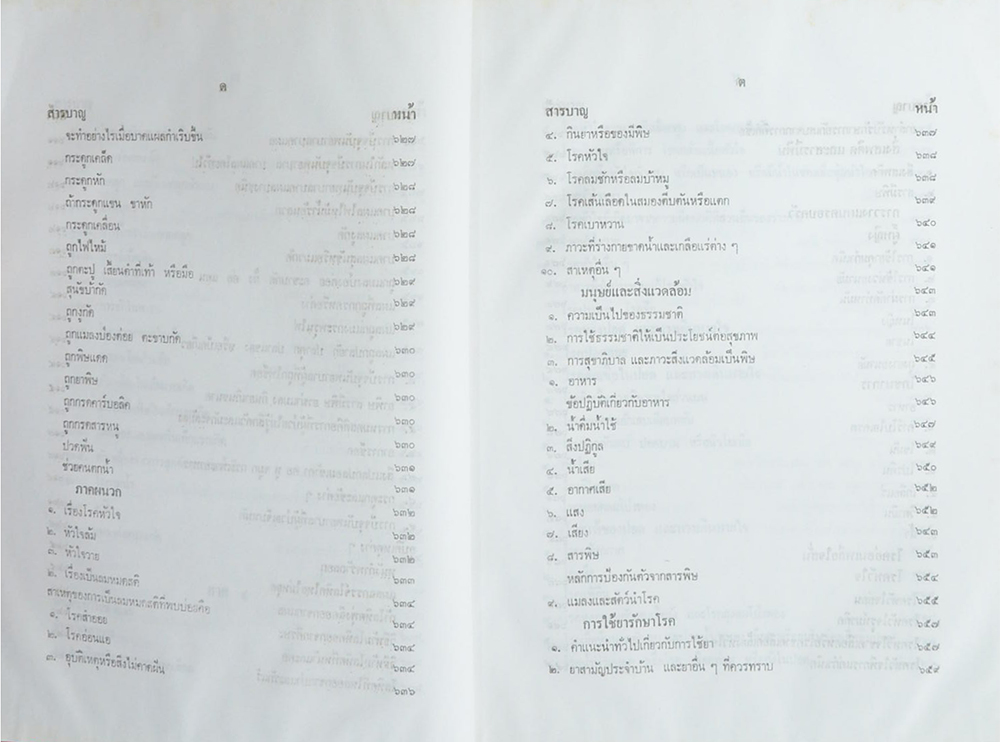 ด
สารบาญ หน้า
จะทำอย่างไรเมื่อบาดแผลกำเริบขึ้น ๖๒๗
กระดูกเคล็ด ๖๒๗
กระดูกหัก ๖๒๘
ถ้ากระดูกแขน ขาหัก ๖๒๘
กระดูกเคลื่อน ๖๒๘
ถูกไฟไหม้ ๖๒๘
ถูกตะปู เสี้ยนตำที่เท้า หรือมือ ๖๒๙
สุนัขบ้ากัด ๖๒๙
ถูกงูกัด ๖๒๙
ถูกแมลงป่องต่อย ตะขาบกัด ๖๓๐
ถูกพิษแดด ๖๓๐
ถูกยาพิษ ๖๓๐
ถูกกรดคาร์บอลิค ๖๓๐
ถูกกรดสารหนู ๖๓๐
ปวดฟัน ๖๓๑
ช่วยคนตกน้ำ ๖๓๑
ภาคผนวก
๑. เรื่องโรคหัวใจ ๖๓๒
๒. หัวใจล้ม ๖๓๒
๓. หัวใจวาย ๖๓๒
๒. เรื่องเป็นลมหมดสติ ๖๓๓
สาเหตุของการเป็นลมหมดสติที่พบบ่อยคือ ๖๓๔
๑. โรคสำออย ๖๓๔
๒. โรคอ่อนแอ ๖๓๔
๓. อุบัติเหตุหรือสิ่งไม่คาดฝัน ๖๓๖
ต
สารบาญ หน้า
๔. กินยาหรือของมีพิษ ๖๓๗
๕. โรคหัวใจ ๖๓๘
๖. โรคลมชักหรือลมบ้าหมู ๖๓๘
๗. โรคเส้นเลือดในสมองตีบตันหรือแตก ๖๓๙
๘. โรคเบาหวาน ๖๔๐
๙. ภาวะที่ร่างกายขาดน้ำและเกลือแร่ต่าง ๆ ๖๔๑
๑๐. สาเหตุอื่น ๆ ๖๔๑
มนุษย์และสิ่งแวดล้อม ๖๔๓
๑. ความเป็นไปของธรรมชาติ ๖๔๓
๒. การใช้ธรรมชาติให้เป็นประโยชน์ต่อสุขภาพ ๖๔๔
๓. การสุขาภิบาล และภาวะสิ่งแวดล้อมเป็นพิษ ๖๔๕
๑. อาหาร ๖๔๖
ข้อปฏิบัติเกี่ยวกับอาหาร ๖๔๖
๒. น้ำดื่มน้ำใช้ ๖๔๗
๓. สิ่งปฏิกูล ๖๔๙
๔. น้ำเสีย ๖๕๐
๕. อากาศเสีย ๖๕๒
๖. แสง ๖๕๒
๗. เสียง ๖๕๓
๘. สารพิษ ๖๕๓
หลักการป้องกันตัวจากสารพิษ ๖๕๔
๙. แมลงและสัตว์นำโรค ๖๕๕
การใช้ยารักษาโรค ๖๕๗
๑. คำแนะนำทั่วไปเกี่ยวกับการใช้ยา ๖๕๗
๒. ยาสามัญประจำบ้าน และยาอื่น ๆ ที่ควรทราบ ๖๕๙